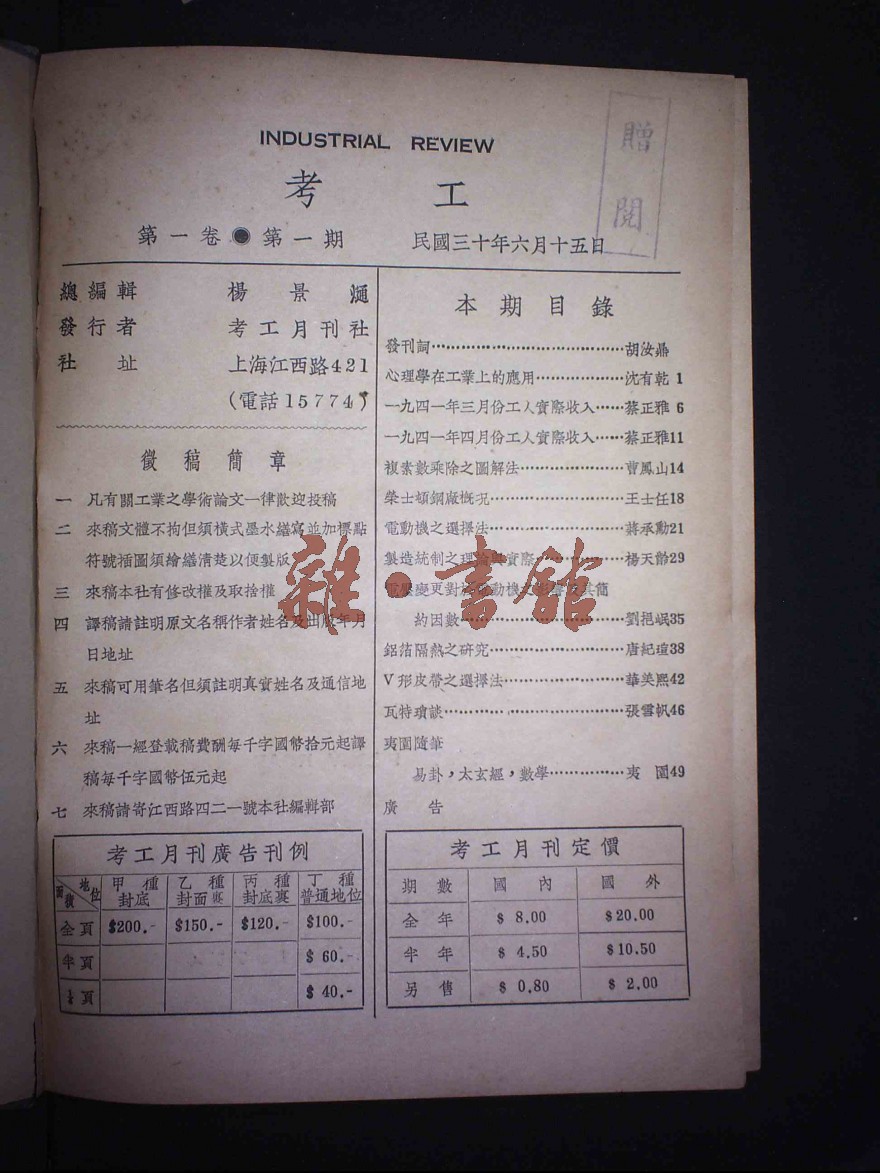 INDUSTRIAL REVIEW
考工
第一卷●第一期 民國三十年六月十五日
贈閱
總編輯 楊景
發行者 考工月刊社
社址 上海江西路421
(電話15774)
徵稿簡章
一 凡有關工業之學術論文一律歡迎投稿
二 來稿文體不拘但須橫式墨水繕寫並加標點
符號插圖須繪繕清楚以便製版
三 來稿本社有修改權及取捨權
四 譯稿請註明原文名稱作者姓名及出版年月
日地址
五 來稿可用筆名但須註明真實姓名及通信地
址
六 來稿一經登載稿費酬每千字國幣拾元起譯
稿每千字國幣伍元起
七 來稿請寄江西路四二一號本社編輯部
考工月刊廣告刊例
面積 地位 甲種封底 乙種封面裏 丙種封底裏 丁種普通地位
全頁 $200.- $150.- $120.- $100.-
半頁 $60.-
¼頁 $40.-
本期目錄
發刊詞……胡汝鼎
心理學在工業上的應用……沈有乾 1
一九四一年三月份工人實際收入……蔡正雅 6
一九四一年四月份工人實際收入……蔡正雅11
複素數乘除之圖解法……曹鳳山14
榮士頓鋼廠概況……王士任18
電動機之選擇法……蔣承勳21
製造統制之理論與實際……楊天齡29
電壓變更對於電動機之影響及其簡
約因數……劉挹岷35
鋁箔隔熱之研究……唐紀瑄38
V形皮帶之選擇法……華美熙42
瓦特瑣談……張雪帆46
夷園隨筆
易卦,太玄經,數學……夷園49
廣告
考工月刊定價
期數 國內 國外
全年 $8.00 $20.00
半年 $4.50 $10.50
另售 $0.80 $2.00
雜·書館